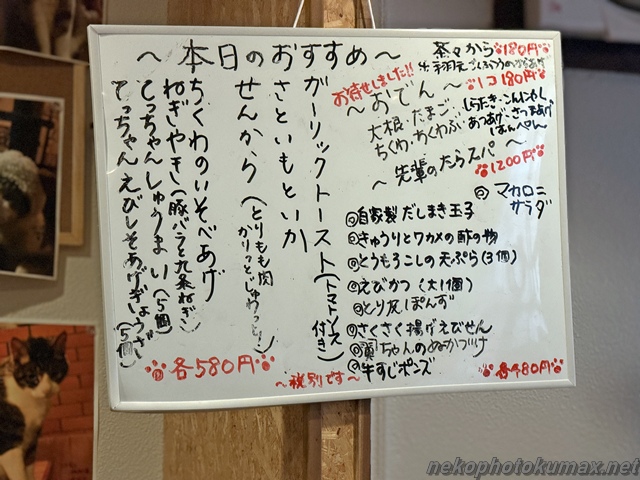 ～本日のおすすめ～
ガーリックトースト（トマトソース付き）
さといもといか
せんから（とりもも肉 かりっとじゅわっと！）
ちくわのいそべあげ
ねぎしやき（豚バラと九条ねぎ）
てっちゃんしゅうまい（5個）
てっちゃんえびしそあげぎょうざ（5個）
各580円
～税別です～
茶々から 180円
お待せしました!!
～おでん～ 1コ180円
大根・たまご・
ちくわ・ちくわぶ
しらたき・こんにゃく
あつあげ・さつまあげ
はんぺん
～先輩のたらスパ～
1200円
マカロニ
サラダ
自家製だしまき玉子
きゅうりとワカメの酢の物
とうもろこしの天ぷら（3個）
えびかつ（大1個）
とり皮ぽんず
さくさく揚げえびせん
翼ちゃんのぬかづけ
牛すじポンズ
各480円
nekophotokumax.net